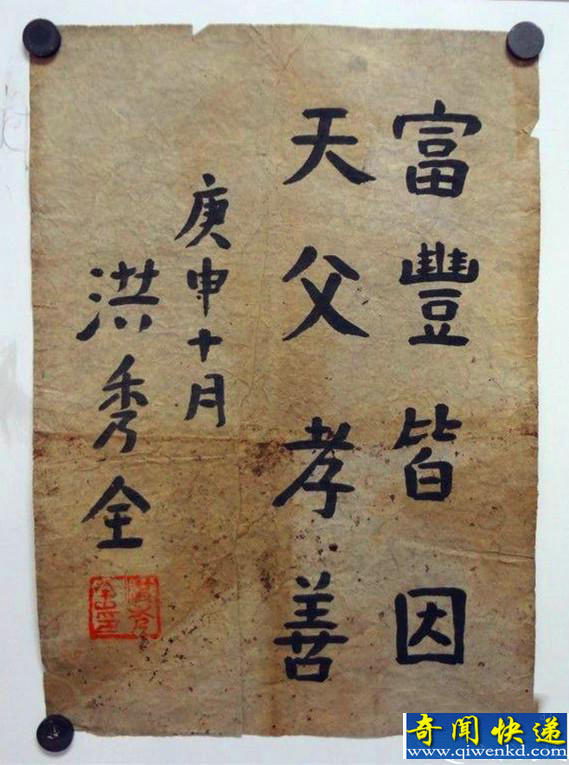 富豐皆因
天父孝善
庚申十月
洪秀全
奇闻快递
www.qiwenkd.com